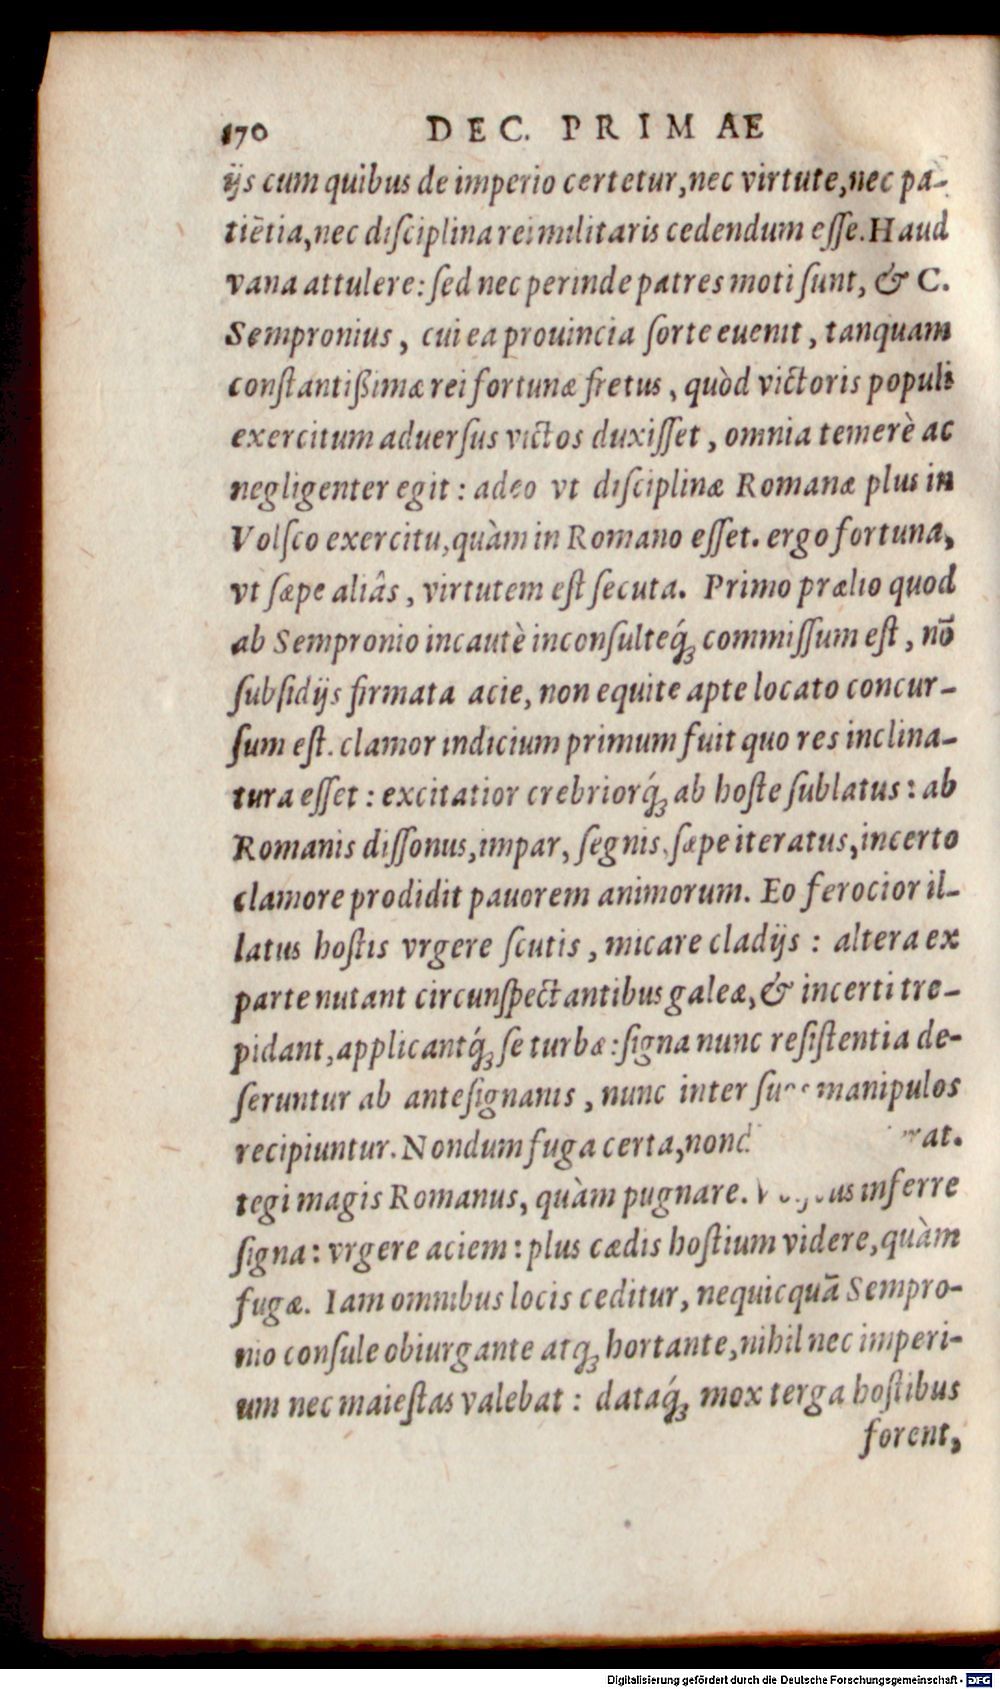 170 DEC. PRIMAE
ijs cum quibus de imperio certetur, nec virtute, nec pa-
tiẽtia, nec disciplina rei militaris cedendum esse. Haud
vana attulere: sed nec perinde patres moti sunt, & C.
Sempronius, cui ea prouincia sorte euenit, tanquam
constantißimæ rei fortunæ fretus, quòd victoris populi
exercitum aduersus victos duxisset, omnia temerè ac
negligenter egit: adeo vt disciplinæ Romanæ plus in
Volsco exercitu, quàm in Romano esset. ergo fortuna,
vt sæpe aliâs, virtutem est secuta. Primo prælio quod
ab Sempronio incautè inconsulteq́ꝫ commissum est, nō
subsidijs firmata acie, non equite apte locato concur-
sum est. clamor indicium primum fuit quo res inclina-
tura esset: excitatior crebriorq́ꝫ ab hoste sublatus: ab
Romanis dissonus, impar, segnis, sæpe iteratus, incerto
clamore prodidit pauorem animorum. Eo ferocior il-
latus hostis vrgere scutis, micare cladijs: altera ex
parte nutant circunspectantibus galeæ, & incerti tre-
pidant, applicantq́ꝫ se turbæ: signa nunc resistentia de-
seruntur ab antesignanis, nunc inter manipulos
recipiuntur. Nondum fuga certa,
tegi magis Romanus, quàm pugnare. inferre
signa: vrgere aciem: plus cædis hostium videre, quàm
fugæ. Iam omnibus locis ceditur, nequicquā Sempro-
nio consule obiurgante atqꝫ hortante, nihil nec imperi-
um nec maiestas valebat: dataq́ꝫ mox terga hostibus
forent,
Digitalisierung gefördert durch die Deutsche Forschungsgemeinschaft - DFG